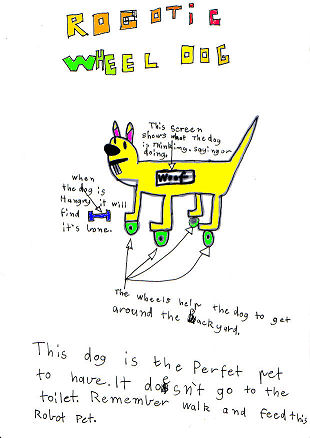 ROBOTIC
WHEEL DOG
This screen
shows what the dog
is thinking. saying or
doing.
Woof
when
the dog is
Hungry it will
find
it's bone.
The wheels help the dog to get
around the Backyard.
This dog is the Perfet pet
to have. It doesn't go to the
toilet. Remember walk and feed this
Robot Pet.